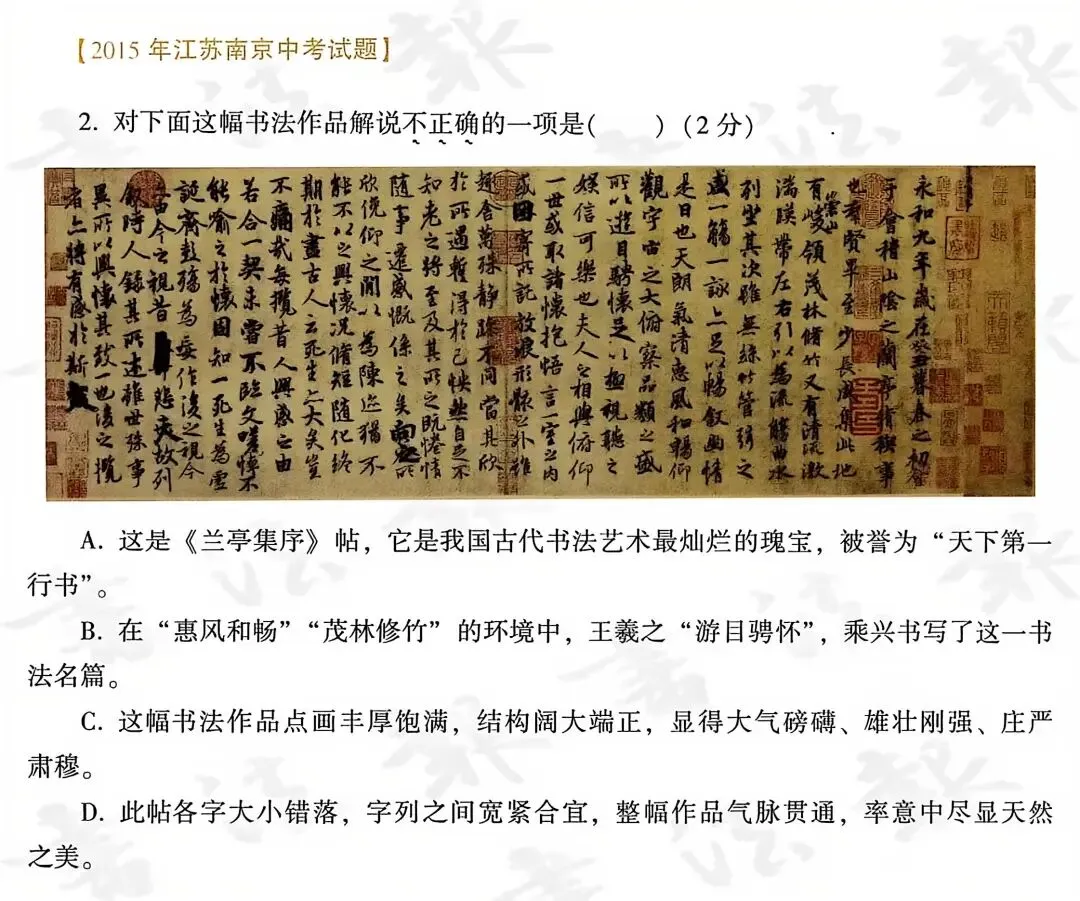 【2015 年江苏南京中考试题】
2. 对下面这幅书法作品解说不正确的一项是(　　)(2 分)
永和九年歲在癸丑暮春之初會
于會稽山陰之蘭亭脩稧事
也羣賢畢至少長咸集此地
有崇山峻領茂林脩竹又有清流激
湍暎帶左右引以為流觴曲水
列坐其次雖無絲竹管弦之
盛一觴一詠亦足以暢敘幽情
是日也天朗氣清惠風和暢仰
觀宇宙之大俯察品類之盛
所以遊目騁懷足以極視聽之
娛信可樂也夫人之相與俯仰
一世或取諸懷抱悟言一室之內
或因寄所託放浪形骸之外雖
趣舍萬殊靜躁不同當其欣
於所遇暫得於己怏然自足不
知老之將至及其所之既惓情
隨事遷感慨係之矣向之所
欣俛仰之閒以為陳迹猶不
能不以之興懷況脩短隨化終
期於盡古人云死生亦大矣豈
不痛哉每攬昔人興感之由
若合一契未嘗不臨文嗟悼不
能喻之於懷固知一死生為虛
誕齊彭殤為妄作後之視今
亦由今之視昔悲夫故列
敘時人錄其所述雖世殊事
異所以興懷其致一也後之攬
者亦將有感於斯文
A. 这是《兰亭集序》帖，它是我国古代书法艺术最灿烂的瑰宝，被誉为“天下第一
行书”。
B. 在“惠风和畅”“茂林修竹”的环境中，王羲之“游目骋怀”，乘兴书写了这一书
法名篇。
C. 这幅书法作品点画丰厚饱满，结构阔大端正，显得大气磅礴、雄壮刚强、庄严
肃穆。
D. 此帖各字大小错落，字列之间宽紧合宜，整幅作品气脉贯通，率意中尽显天然
之美。